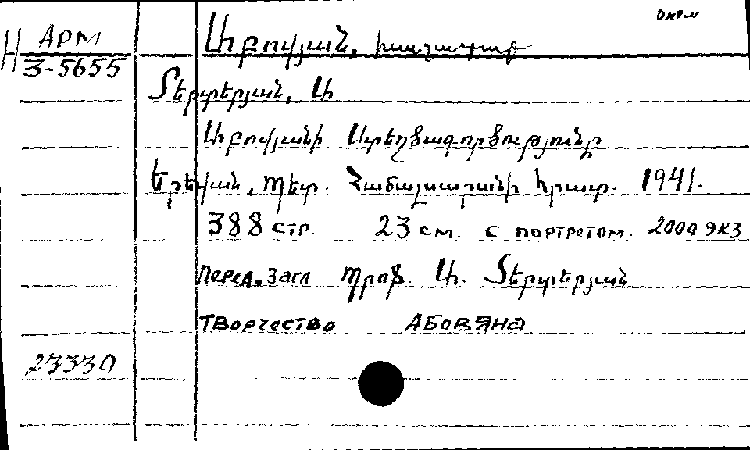 АРМ
Աբովյան, Խաչատուր
Н З-5655
Տերտերյան, Ա
Աբովյանի Ստեղծագործությունը
Երևան, Պետ. Համալսարանի հրատ. 1941.
388 стр. 23 см. с портретом. 2000 экз
Перед. загл Պրոֆ. Ա. Տերտերյան
Творчество АБОВЯНА
23330